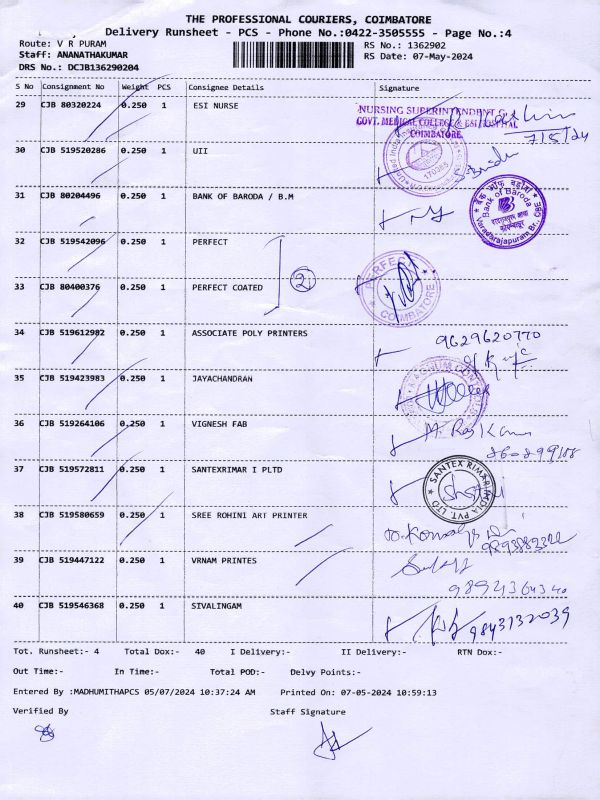 THE PROFESSIONAL COURIERS, COIMBATORE
Delivery Runsheet - PCS - Phone No.:0422-3505555 - Page No.:4
Route: V R PURAM
RS No.: 1362902
Staff: ANANATHAKUMAR
RS Date: 07-May-2024
DRS No.: DCJB136290204
S No Consignment No Weight PCS Consignee Details Signature
29 CJB 80320224 0.250 1 ESI NURSE
NURSING SUPERINTENDENT
GOVT. MEDICAL COLLEGE & ESI HOSPITAL
COIMBATORE.
7/5/24
30 CJB 519520286 0.250 1 UII
170385
31 CJB 80204496 0.250 1 BANK OF BARODA / B.M
बैंक ऑफ़ बड़ौदा
Bank of Baroda
Varadarajapuram Br., CBE
32 CJB 519542096 0.250 1 PERFECT
2
33 CJB 80400376 0.250 1 PERFECT COATED
PERFECT
COIMBATORE
34 CJB 519612982 0.250 1 ASSOCIATE POLY PRINTERS
9629620770
35 CJB 519423983 0.250 1 JAYACHANDRAN
36 CJB 519264106 0.250 1 VIGNESH FAB
37 CJB 519572811 0.250 1 SANTEXRIMAR I PLTD
SANTEX RIMAR INDIA PVT. LTD
38 CJB 519580659 0.250 1 SREE ROHINI ART PRINTER
39 CJB 519447122 0.250 1 VRNAM PRINTES
40 CJB 519546368 0.250 1 SIVALINGAM
9843132039
Tot. Runsheet:- 4 Total Dox:- 40 I Delivery:- II Delivery:- RTN Dox:-
Out Time:- In Time:- Total POD:- Delvy Points:-
Entered By :MADHUMITHAPCS 05/07/2024 10:37:24 AM Printed On: 07-05-2024 10:59:13
Verified By Staff Signature